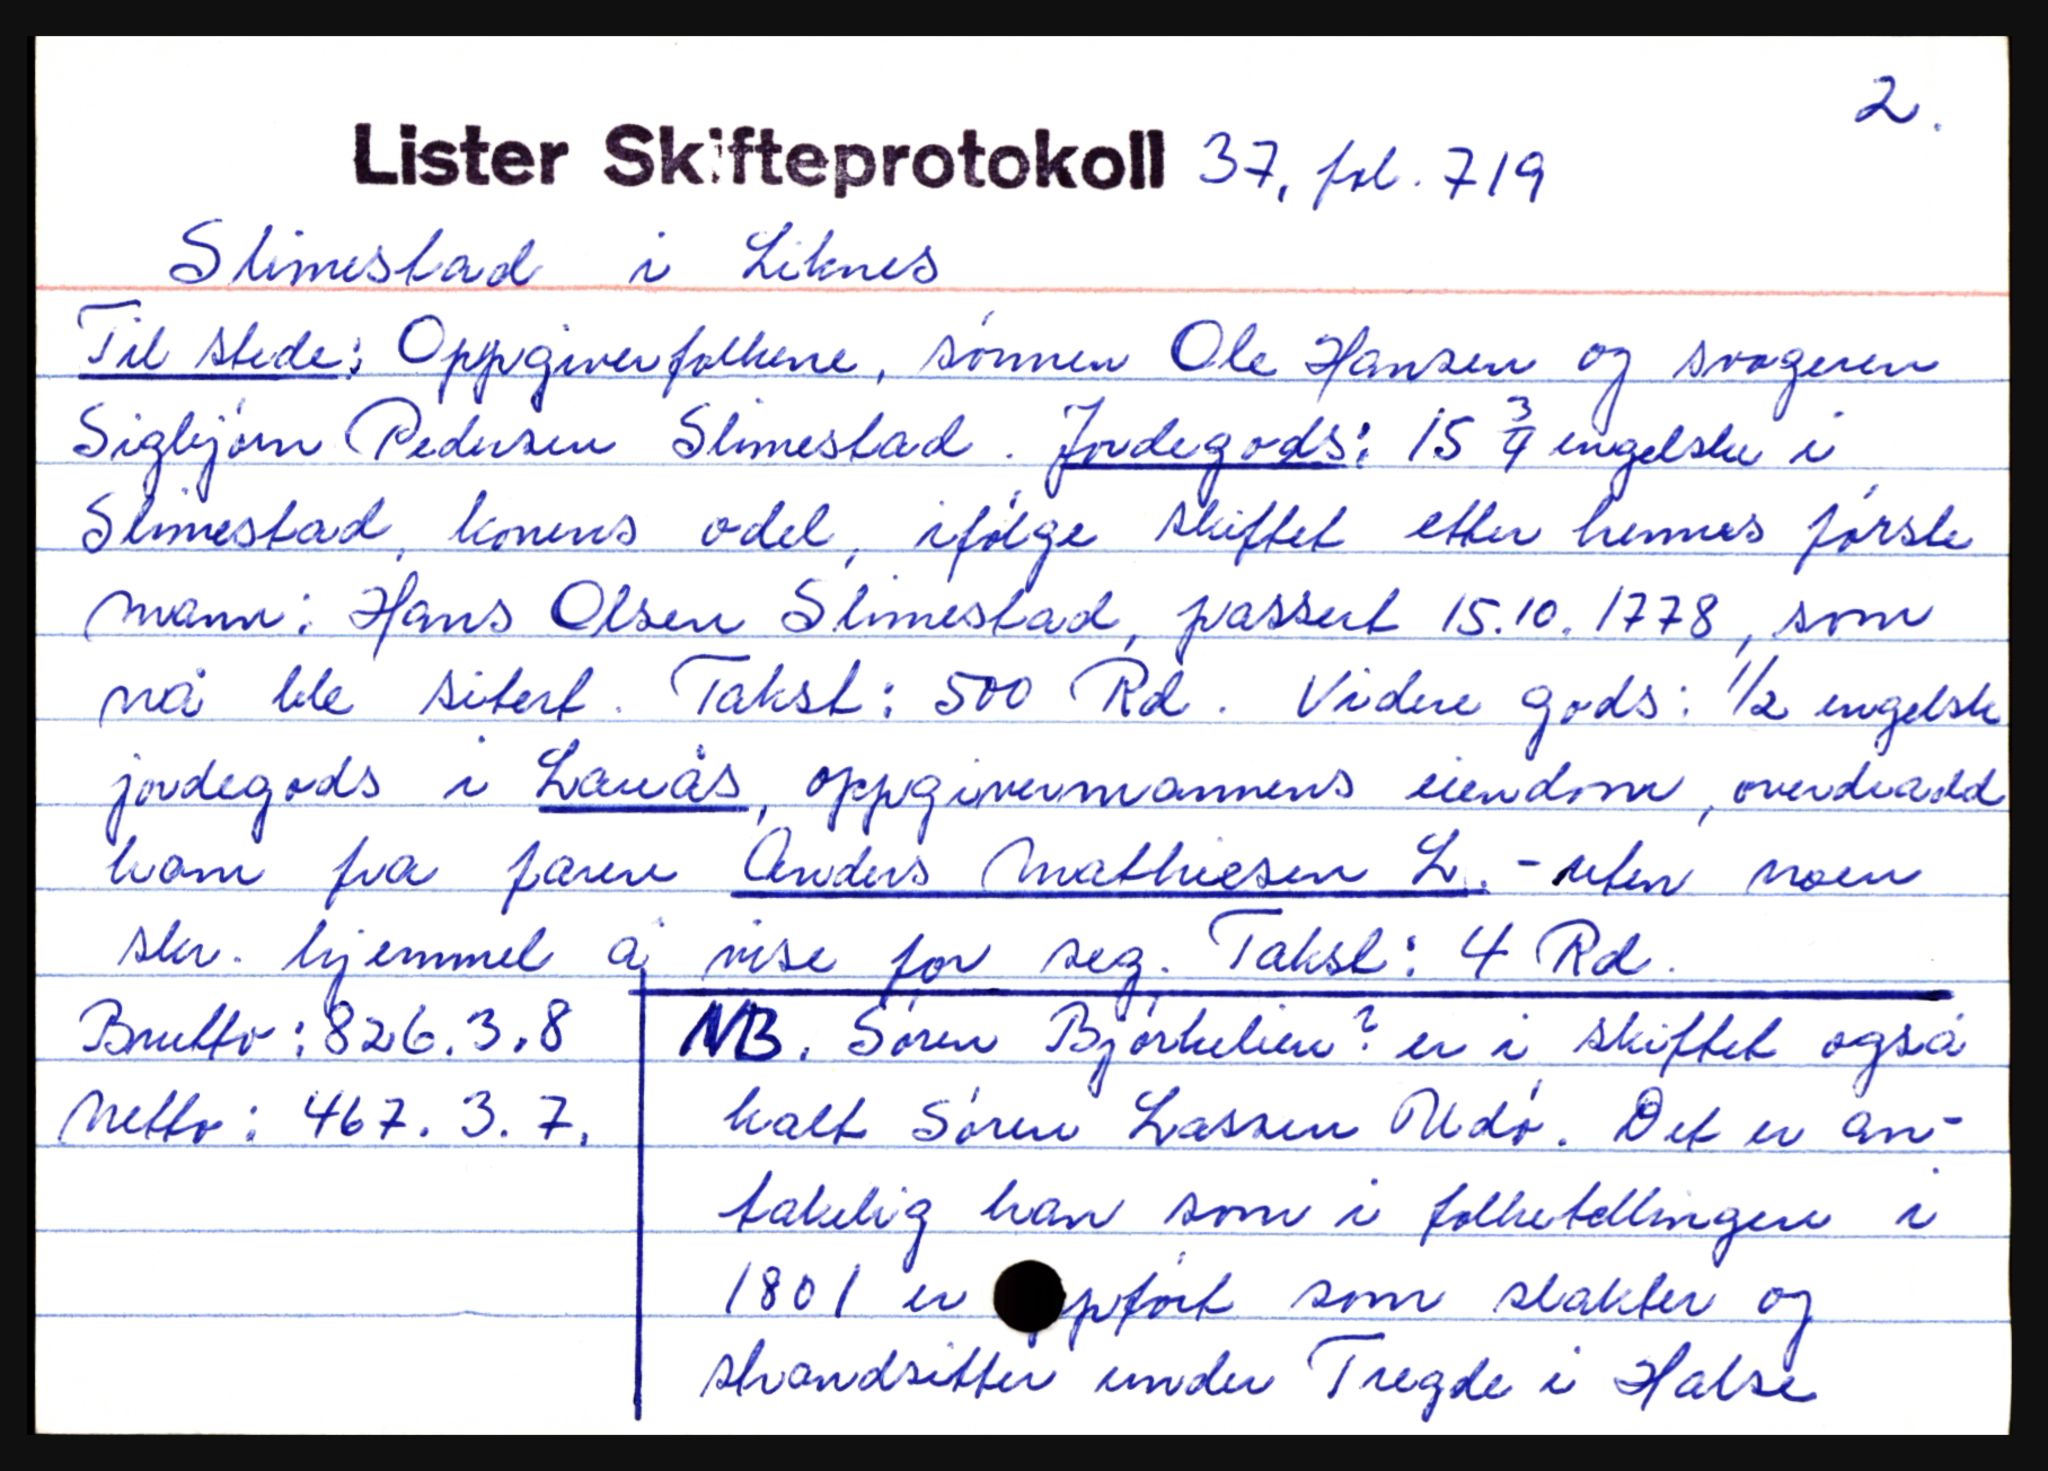 2.
Lister Skifteprotokoll 37, fol. 719
Slimestad i Liknes
Til stede: Oppgiverfolkene, sønnen Ole Hansen og svogeren
Sigbjørn Pedersen Slimestad. Jordegods: 15 3/4 engelske i
Slimestad, konens odel, ifølge skiftet etter hennes første
mann: Hans Olsen Slimestad, passert 15.10.1778, som
nå ble sitert. Takst: 500 Rd. Videre gods: 1/2 engelsk
jordegods i Lauås, oppgivermannens eiendom, overdradd
ham fra faren Anders Mathiesen L. - uten noen
skr. hjemmel å vise for seg. Takst: 4 Rd.
Brutto: 826.3.8
Netto: 467.3.7.
NB. Søren Bjørkelien? er i skiftet også
kalt Søren Lassen Udø. Det er an-
takelig han som i folketellingen i
1801 er oppført som slakter og
strandsitter under Tregde i Halse